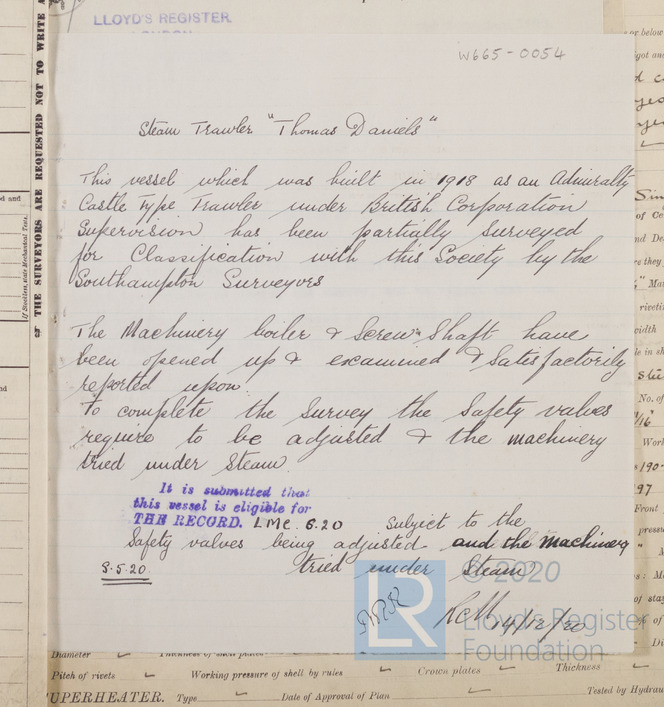 LLOYD'S REGISTER
W665-0054
THE SURVEYORS ARE REQUESTED NOT TO WRITE
Steam Trawler "Thomas Daniels"
This vessel which was built in 1918 as an Admiralty
Castle type Trawler under British Corporation
Supervision has been partially surveyed
for Classification with this Society by the
Southampton Surveyors
The Machinery boiler & Screw Shaft have
been opened up & examined & Satisfactorily
reported upon.
To complete the Survey the Safety valves
require to be adjusted & the machinery
tried under Steam.
It is submitted that
this vessel is eligible for
THE RECORD. LMC. 5.20 Subject to the
Safety valves being adjusted and the machinery
tried under Steam
© 2020
LR
Lloyd's Register
Foundation
Diameter
Pitch of rivets Working pressure of shell by rules Crown plates Thickness
UPERHEATER. Type Date of Approval of Plan Tested by